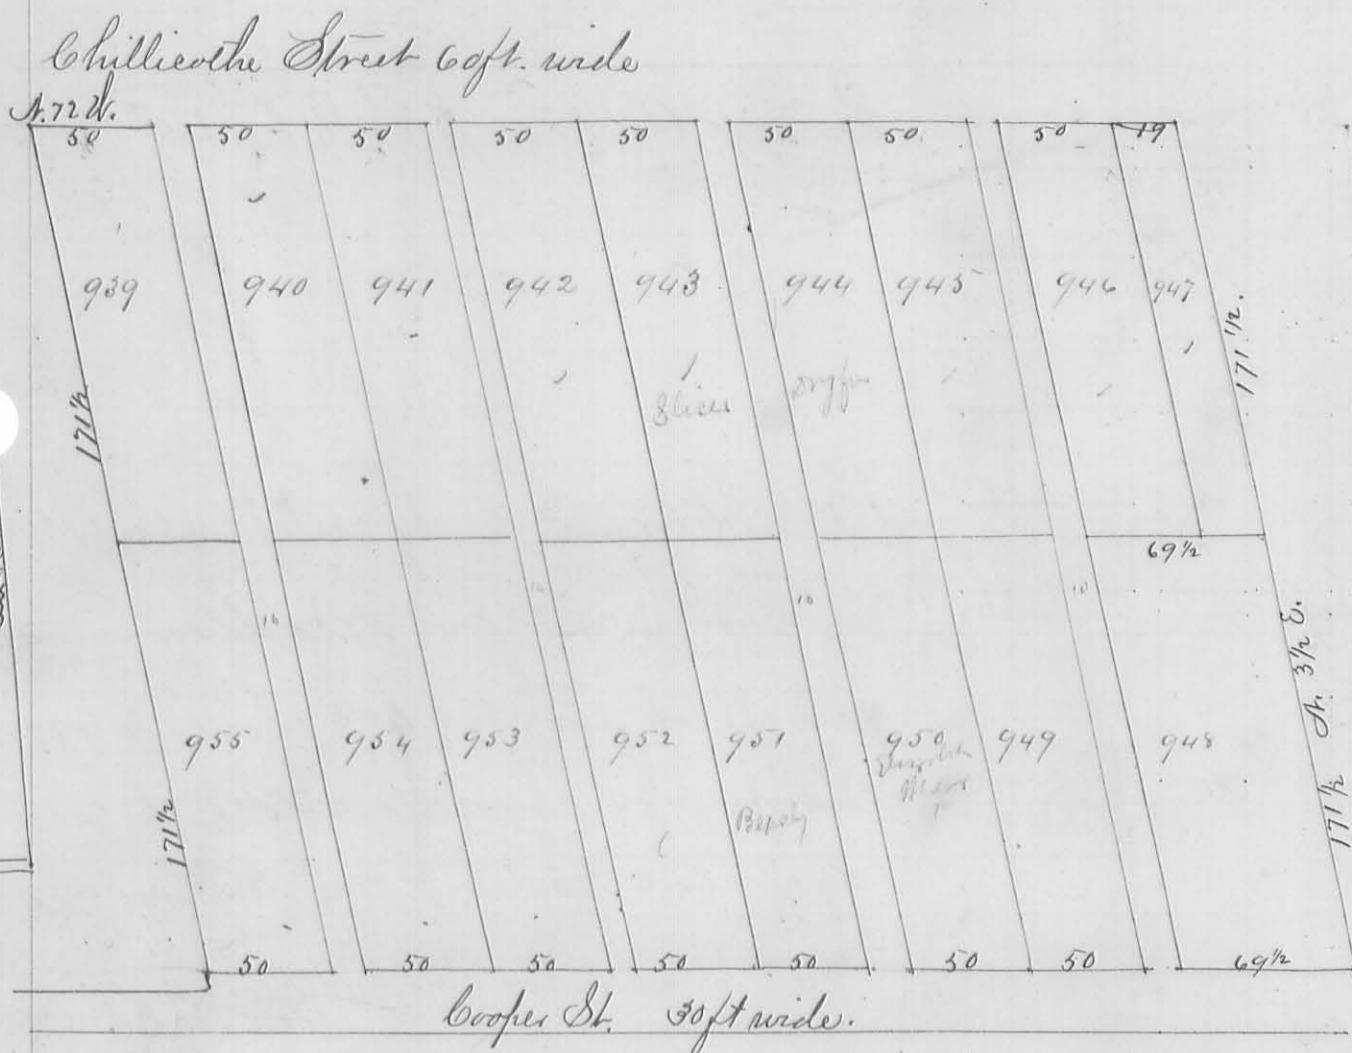 Chillicothe Street 60ft. wide
N. 72 W.
50 50 50 50 50 50 50. 50 19
939 940 941 942 943 944 945 946 947
171½ 171½.
Slicer
69½
16 10 10 10
171½ N. 3½ E.
955 954 953 952 951 950 949 948
171½
50 50 50 50 50 50 50 69½
Cooper St. 30ft wide.